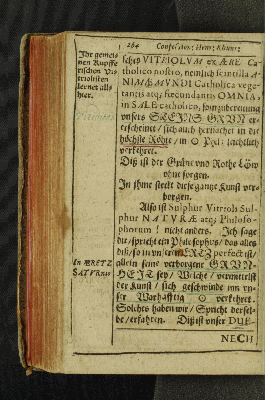 264 Confessio; Henr: Khunr:
Ihr gemei-
nen Kupffe
rischen Vi-
triolisten
lernet all-
hier.
sches VITRIOLUM ex ÆRE Ca-
tholico nostro, nemlich scintilla A-
NIMÆ MUNDI Catholica vege-
tantis atq; fœcundantis OMNIA,
in SALE Catholico, so in zubereitung
unsers STEINS GRUN er-
erscheinet / sich auch hernacher in die
höchste Röhte / in ☉
verkehret.
Diß ist der Grüne vnd Rothe Löw
ohne sorgen.
In ihme steckt die gantze Kunst ver-
borgen.
Also ist Sulphur Vitrioli Sul-
phur NATURÆ atq; Philoso-
phorum / nicht anders. Ich sage
dir / spricht ein Philosophus / das alles
diß / so in vnserm ERTZ perfect ist /
allein seine verborgene GRUN-
HEIT sey / Welche / vermittelst
der Kunst / sich geschwinde inn vn-
ser Warhafftig ☉ verkehret.
Solches haben wir / Spricht dersel-
be / erfahren. Diß ist unser DUE-
In ÆRE TZ
SATURNI.
NECH